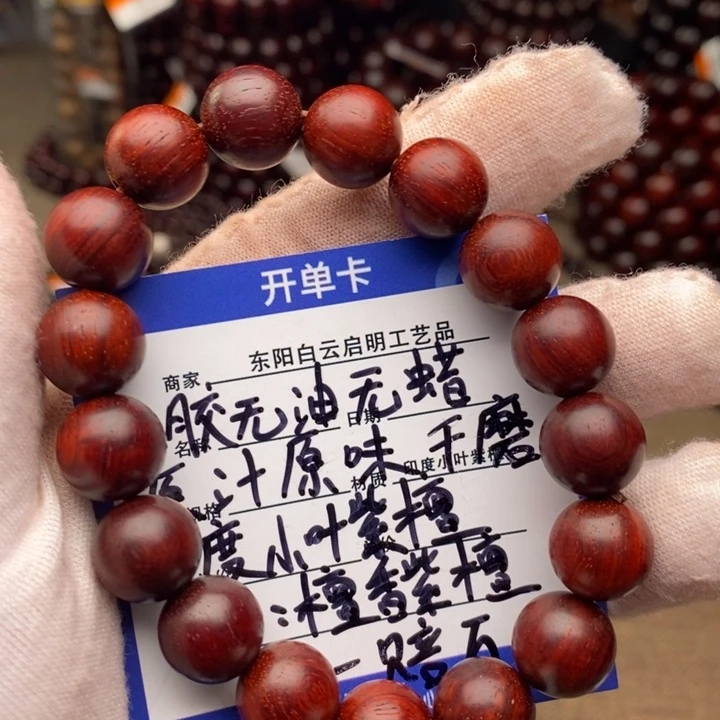 开单卡
商家 东阳白云启明工艺品
胶无油无蜡
名称 日期
原汁原味 手磨
规格 材质 印度小叶紫檀
度小叶紫檀
:檀香紫檀
一赔万